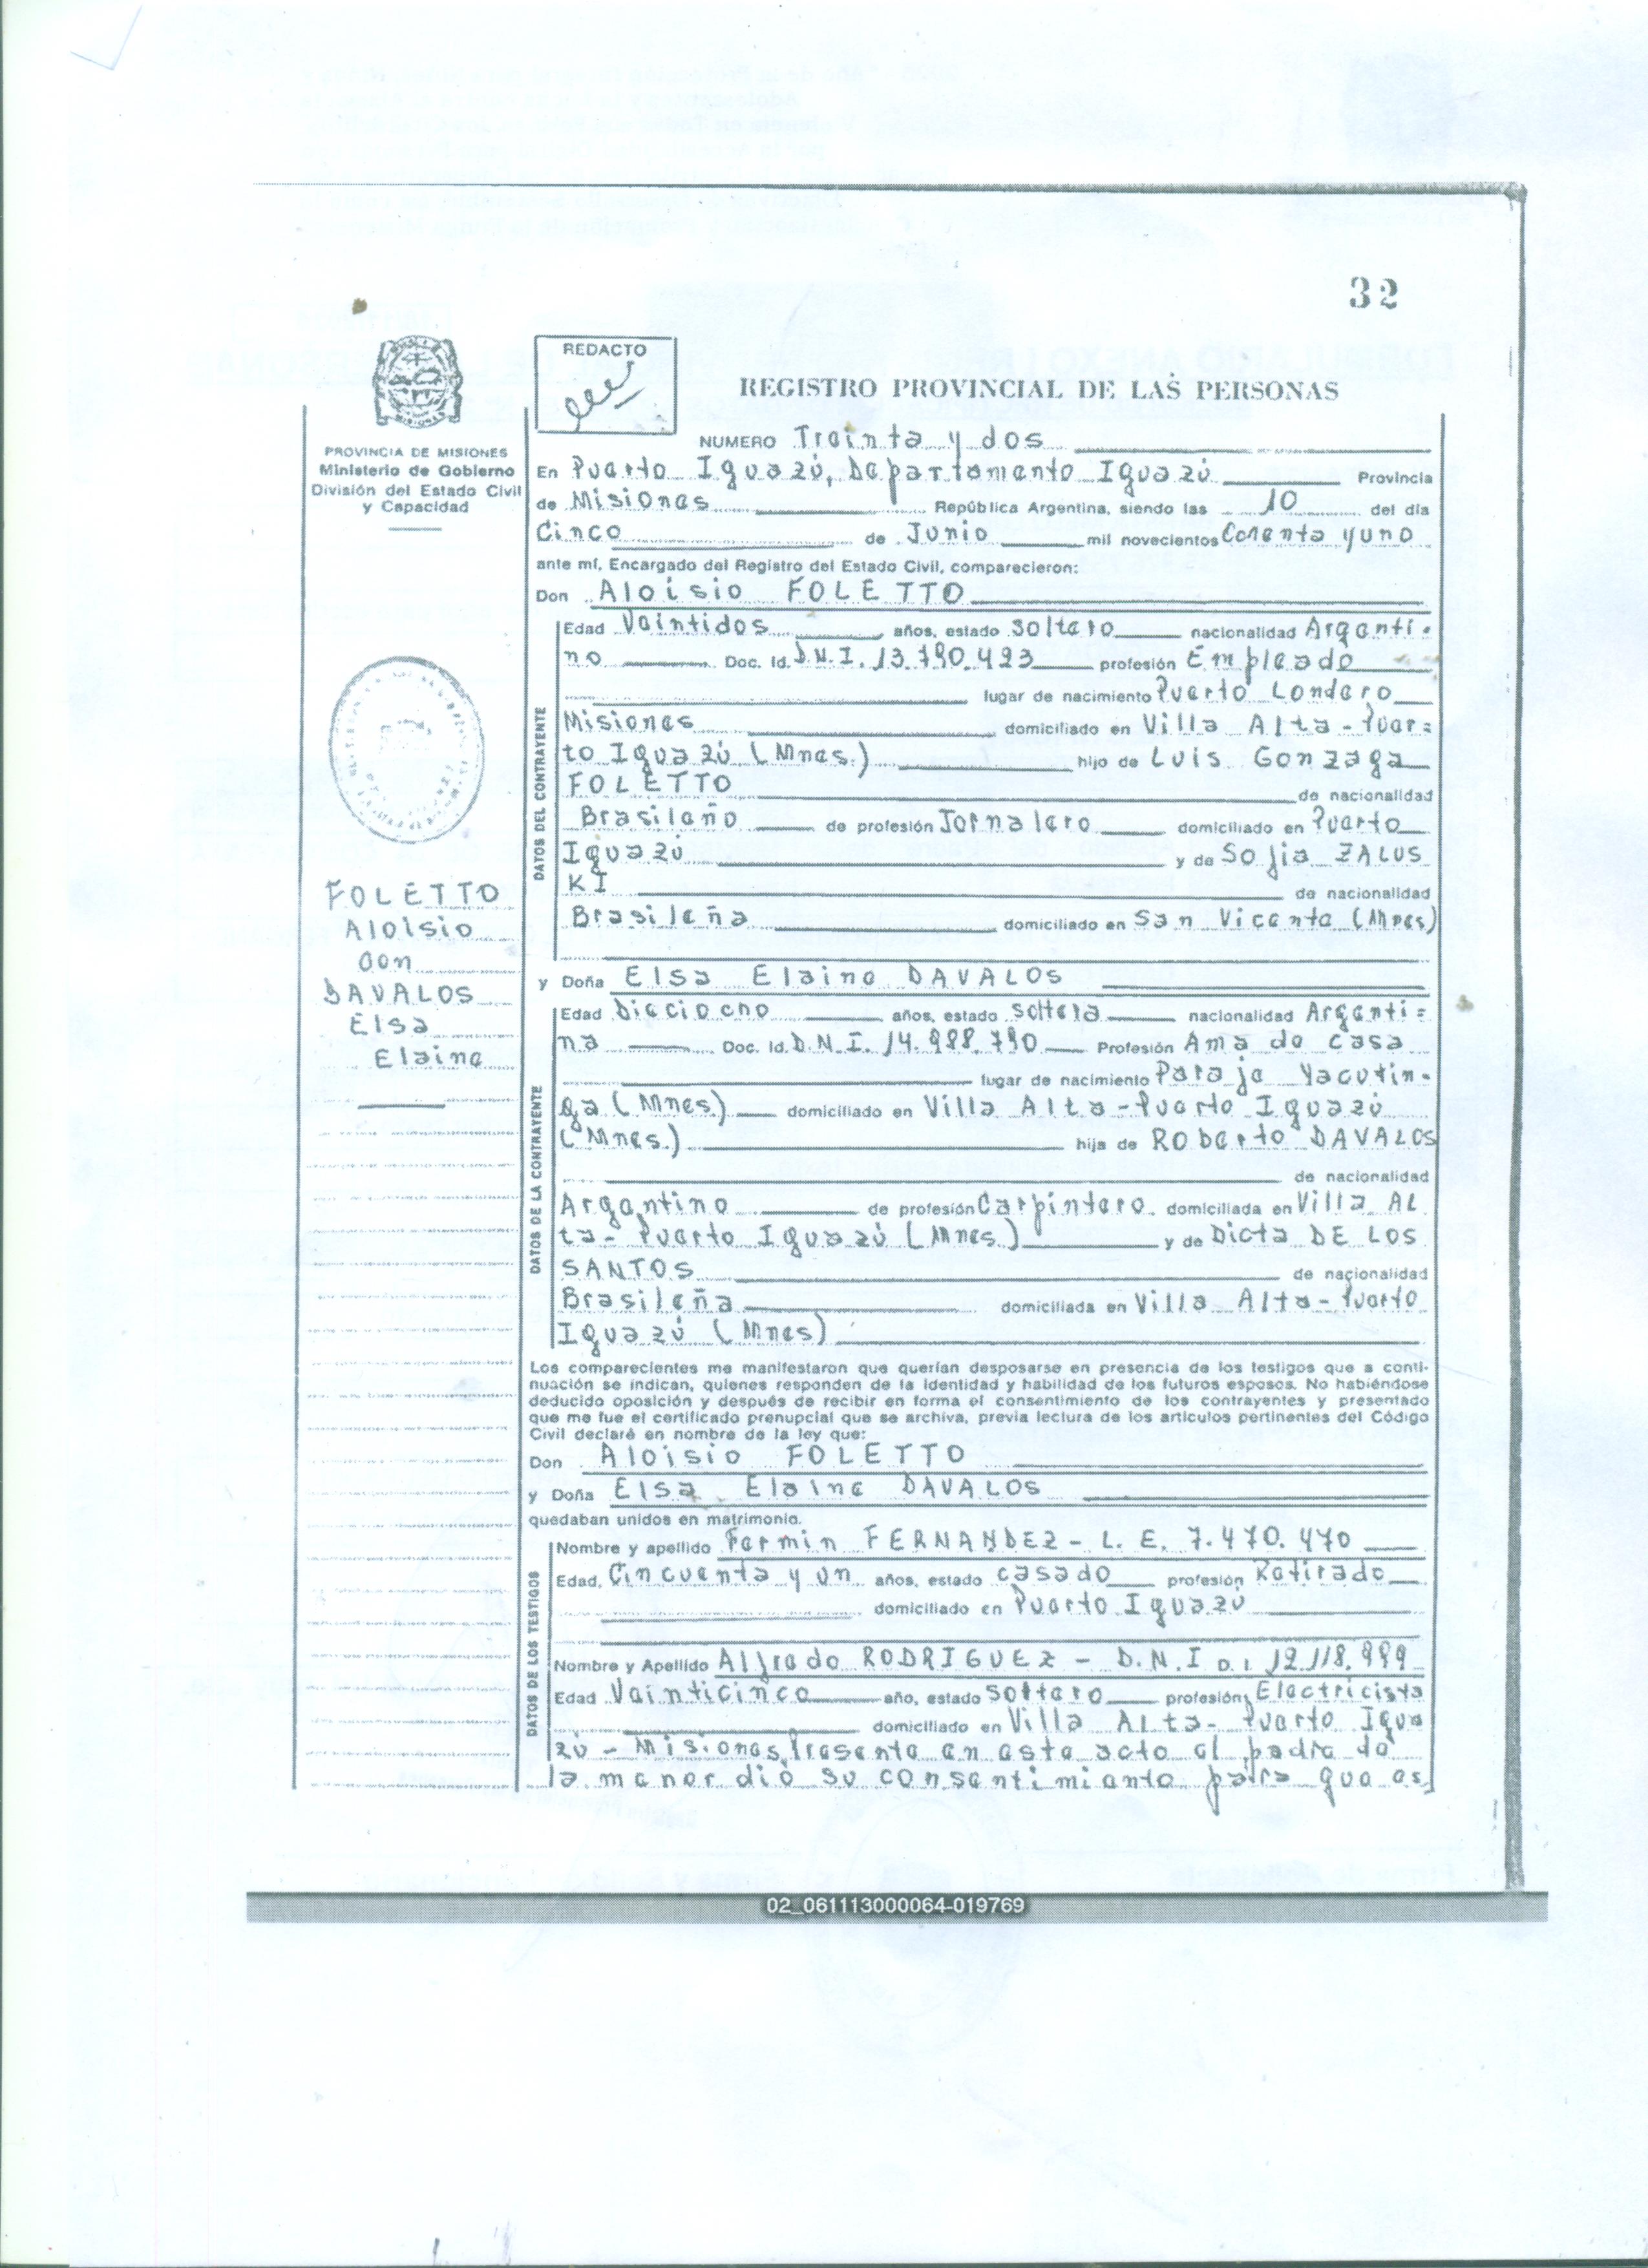 32
REDACTO
REGISTRO PROVINCIAL DE LAS PERSONAS
PROVINCIA DE MISIONES
Ministerio de Gobierno
División del Estado Civil
y Capacidad
FOLETTO
Aloisio
con
DAVALOS
Elsa
Elaine
NUMERO Treinta y dos
En Puerto Iguazú, Departamento Iguazú Provincia
de Misiones República Argentina, siendo las 10 del día
Cinco de Junio mil novecientos y uno
ante mí, Encargado del Registro del Estado Civil, comparecieron:
Don Aloisio FOLETTO
DATOS DEL CONTRAYENTE
Edad Veintidos años, estado soltero nacionalidad Argenti-
no Doc. Id. D.N.I. 13.790.493 profesión Empleado
lugar de nacimiento Puerto Londero
Misiones domiciliado en Villa Alta - Puer=
to Iguazú (Mnes.) hijo de Luis Gonzaga
FOLETTO de nacionalidad
Brasileño de profesión Jornalero domiciliado en Puerto
Iguazú y de Sofia ZALUS
KI de nacionalidad
Brasileña domiciliado en San Vicente (Mnes)
y Doña Elsa Elaine DAVALOS
DATOS DE LA CONTRAYENTE
Edad Dieciocho años, estado soltera nacionalidad Argenti=
na Doc. Id. D.N.I. 14.988.790 Profesión Ama de casa
lugar de nacimiento Paraje Yacutin-
ga (Mnes) domiciliado en Villa Alta - Puerto Iguazú
(Mnes.) hija de Roberto DAVALOS
de nacionalidad
Argentino de profesión Carpintero domiciliada en Villa AL
ta - Puerto Iguazú (Mnes) y de Dicta DE LOS
SANTOS de nacionalidad
Brasileña domiciliada en Villa Alta - Puerto
Iguazú (Mnes)
Los comparecientes me manifestaron que querían desposarse en presencia de los testigos que a conti-
nuación se indican, quienes responden de la identidad y habilidad de los futuros esposos. No habiéndose
deducido oposición y después de recibir en forma el consentimiento de los contrayentes y presentado
que me fue el certificado prenupcial que se archiva, previa lectura de los artículos pertinentes del Código
Civil declaré en nombre de la ley que:
Don Aloisio FOLETTO
y Doña Elsa Elaine DAVALOS
quedaban unidos en matrimonio.
DATOS DE LOS TESTIGOS
Nombre y apellido Fermin FERNANDEZ - L. E. 7.470.470
Edad, Cincuenta y un años, estado casado profesión Retirado
domiciliado en Puerto Iguazú
Nombre y Apellido Alfredo RODRIGUEZ - D.N.I 12.118.999
Edad Veinticinco año, estado soltero profesión, Electricista
domiciliado en Villa Alta - Puerto Igua
zú - Misiones, Presente en este acto el padre de
la menor dió su consentimiento para que es
02_061113000064-019769